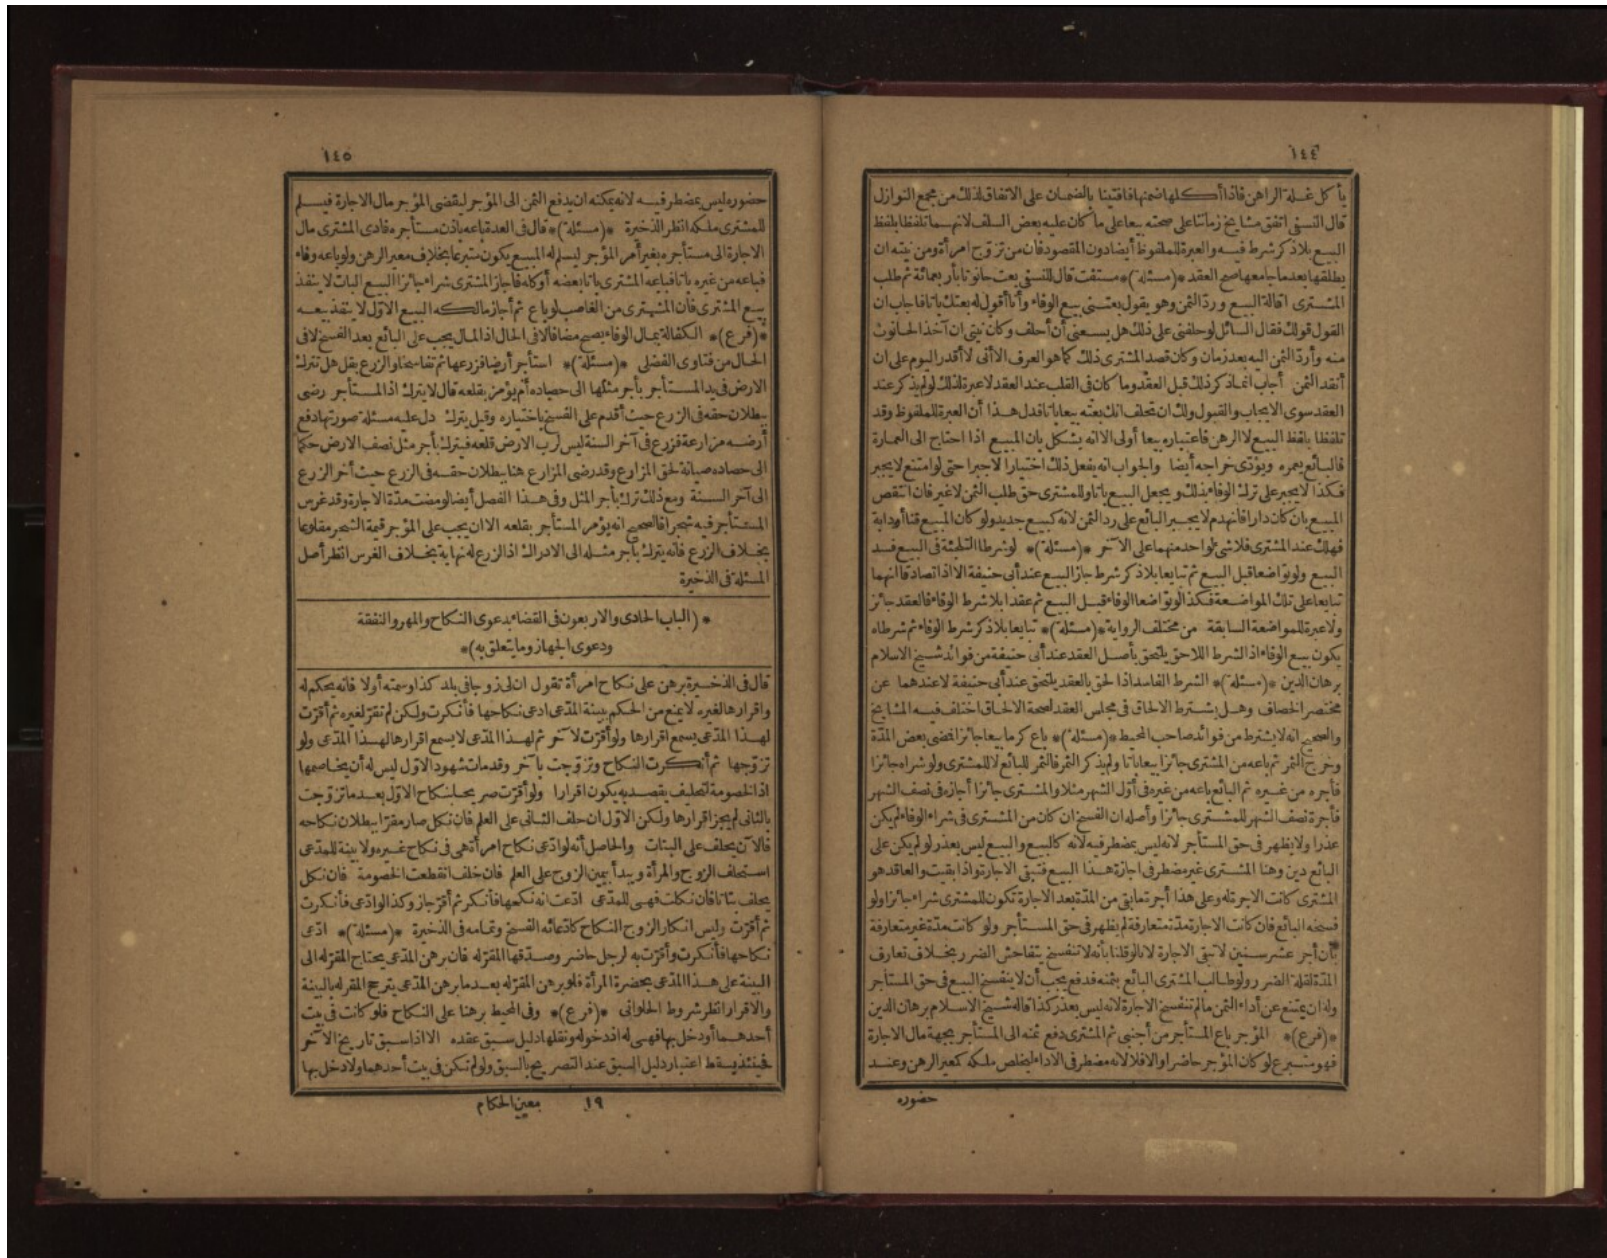 ١٤٤
يأكل غلة الراهن فاذا أكلها ضمنها فافتينا بالضمان على الاتفاق لذلك من مجمع النوازل
قال النسفى اتفق مشايخ زماننا على صحته بيعا على ما كان عليه بعض السلف لانهما تلفظا بلفظ
البيع بلا ذكر شرط فيه والعبرة للملفوظ أيضا دون المقصود فان من تزوج امرأة ومن نيته ان
يطلقها بعدما جامعها صح العقد *(مسئلة)* ستفت قال للنسفى بعت حانوتا بأربعمائة ثم طلب
المشترى اقالة البيع وردّ الثمن وهو يقول بعتنى بيع الوفاء وأنا أقول له بعتك باتا فاجاب ان
القول قولك فقال السائل لو حلفنى على ذلك هل يسعنى أن أحلف وكان نيتى ان آخذ الحانوت
منه وأردّ الثمن اليه بعد زمان وكان قصد المشترى ذلك كما هو العرف الا أنى لا أقدر اليوم على ان
أنقد الثمن أجاب انما ذكر ذلك قبل العقد وما كان فى القلب عند العقد لا عبرة لذلك لو لم يذكر عند
العقد سوى الايجاب والقبول ولك ان تحلف انك بعته بيعا باتا فدل هذا أن العبرة للملفوظ وقد
تلفظا بلفظ البيع لا الرهن فاعتباره بيعا أولى الا انه يشكل بان المبيع اذا احتاج الى العمارة
فالبائع يعمره ويؤدى خراجه أيضا والجواب انه يفعل ذلك اختيارا لا جبرا حتى لو امتنع لا يجبر
فكذا لا يجبر على ترك الوفاء بذلك ويجعل البيع باتا وللمشترى حق طلب الثمن لا غير فان انتقص
المبيع بان كان دارا فانهدم لا يجبر البائع على رد الثمن لانه كبيع جديد ولو كان المبيع قنا أو دابة
فهلك عند المشترى فلا شئ لواحد منهما على الآخر *(مسئلة)* لو شرطا التلجئة فى البيع فسد
البيع ولو تواضعا قبل البيع ثم تبايعا بلا ذكر شرط جاز البيع عند أبى حنيفة الا اذا تصادقا انهما
تبايعا على تلك المواضعة فكذا لو تواضعا الوفاء قبل البيع ثم عقدا بلا شرط الوفاء فالعقد جائز
ولا عبرة للمواضعة السابقة من مختلف الرواية *(مسئلة)* تبايعا بلا ذكر شرط الوفاء ثم شرطاه
يكون بيع الوفاء اذ الشرط اللاحق يلتحق بأصل العقد عند أبى حنيفة من فوائد شيخ الاسلام
برهان الدين *(مسئلة)* الشرط الفاسد اذا لحق بالعقد يلتحق عند أبى حنيفة لا عندهما عن
مختصر الخصاف وهل يشترط الالحاق فى مجلس العقد لصحة الالحاق اختلف فيه المشايخ
والصحيح انه لا يشترط من فوائد صاحب المحيط *(مسئلة)* باع كرما بيعا جائزا فمضى بعض المدّة
وخرج الثمر ثم باعه من المشترى جائزا بيعا باتا ولم يذكر الثمر فالثمر للبائع لا للمشترى ولو شراه جائزا
فأجره من غيره ثم البائع باعه من غيره فى أوّل الشهر مثلا والمشترى جائزا أجازه فى نصف الشهر
فأجرة نصف الشهر للمشترى جائزا وأصله ان الفسخ ان كان من المشترى فى شراء الوفاء لم يكن
عذرا ولا يظهر فى حق المستأجر لانه ليس بمضطر فيه لانه كالبيع والبيع ليس بعذر لو لم يكن على
البائع دين وهنا المشترى غير مضطر فى اجازة هذا البيع فتبقى الاجارة واذا بقيت والعاقد هو
المشترى كانت الاجرة له وعلى هذا أجر ما بقى من المدّة بعد الاجارة تكون للمشترى شراء جائزا ولو
فسخه البائع فان كانت الاجارة مدّة متعارفة لم يظهر فى حق المستأجر ولو كانت مدة غير متعارفة
بأن أجر عشر سنين لا تبقى الاجارة لانا لو قلنا بأنه لا تنفسخ يتفاحش الضرر بخلاف تعارف
المدّة لقلة الضرر ولو طالب المشترى البائع بثمنه فدفع يجب أن لا ينفسخ البيع فى حق المستأجر
وله ان يمتنع عن أداء الثمن ما لم تنفسخ الاجارة لانه ليس بعذر كذا قاله شيخ الاسلام برهان الدين
*(فرع)* المؤجر باع المستأجر من أجنبى ثم المشترى دفع ثمنه الى المستأجر بجهة مال الاجارة
فهو متبرع لو كان المؤجر حاضرا والا فلا لانه مضطر فى الاداء ليخلص ملكه كمعير الرهن وعند
حضوره
١٤٥
حضوره ليس بمضطر فيه لانه يمكنه ان يدفع الثمن الى المؤجر ليقضى المؤجر مال الاجارة فيسلم
للمشترى ملكه انظر الذخيرة *(مسئلة)* قال فى العدة باعه باذن مستأجره فأدى المشترى مال
الاجارة الى مستأجره بغير أمر المؤجر ليسلم له المبيع يكون متبرعا بخلاف معير الرهن ولو باعه وفاء
فباعه من غيره باتا فباعه المشترى باتا بعضه أو كله فأجاز المشترى شراء جائزا البيع البات لا ينفذ
بيع المشترى فان المشترى من الغاصب لو باع ثم أجاز مالكه البيع الاوّل لا ينفذ بيعه
*(فرع)* الكفالة بمال الوفاء يصح مضافا لا فى الحال اذ المال يجب على البائع بعد الفسخ لا فى
الحال من فتاوى الفضلى *(مسئلة)* استأجر أرضا فزرعها ثم تفاسخا والزرع بقل هل تترك
الارض فى يد المستأجر بأجر مثلها الى حصاده أم يؤمر بقلعه قال لا يترك اذ المستأجر رضى
ببطلان حقه فى الزرع حيث أقدم على الفسخ باختياره وقيل يترك دل عليه مسئلة صورتها دفع
أرضه مزارعة فزرع فى آخر السنة ليس لرب الارض قلعه فيترك بأجر مثل نصف الارض حكما
الى حصاده صيانة لحق المزارع وقد رضى المزارع هنا ببطلان حقه فى الزرع حيث أخر الزرع
الى آخر السنة ومع ذلك ترك بأجر المثل وفى هذا الفصل أيضا لو مضت مدّة الاجارة وقد غرس
المستأجر فيه شجرا فالصحيح انه يؤمر المستأجر بقلعه الا ان يجب على المؤجر قيمة الشجر مقلوعا
بخلاف الزرع فانه يترك بأجر مثله الى الادراك اذ الزرع له نهاية بخلاف الغرس انظر أصل
المسئلة فى الذخيرة
*(الباب الحادى والاربعون فى القضاء بدعوى النكاح والمهر والنفقة
ودعوى الجهاز وما يتعلق به)*
قال فى الذخيرة برهن على نكاح امرأة تقول ان لى زوجا فى بلد كذا وسمته أولا فانه يحكم له
واقرارها لغيره لا يمنع من الحكم ببينة المدّعى ادعى نكاحها فأنكرت ولكن لم تقرّ لغيره ثم أقرّت
لهذا المدّعى يسمع اقرارها ولو أقرّت لآخر ثم لهذا المدّعى لا يسمع اقرارها لهذا المدّعى ولو
تزوّجها ثم أنكرت النكاح وتزوّجت بآخر وقد مات شهود الاول ليس له أن يخاصمها
اذ الخصومة لتحليف يقصد به يكون اقرارا ولو أقرّت صريحا بنكاح الاوّل بعد ما تزوّجت
بالثانى لم يجز اقرارها ولكن الاوّل ان حلف الثانى على العلم فان نكل صار مقرّا ببطلان نكاحه
فالآن يحلف على البتات والحاصل أنه لو ادّعى نكاح امرأة هى فى نكاح غيره ولا بينة للمدّعى
استحلف الزوج والمرأة ويبدأ بيمين الزوج على العلم فان حلف انقطعت الخصومة فان نكل
يحلف بتاتا فان نكلت فهى للمدّعى ادّعت انه نكحها فأنكر ثم أقرّ جاز وكذا لو ادّعى فأنكرت
ثم أقرّت وليس انكار الزوج النكاح كادّعائه الفسخ وتمامه فى الذخيرة *(مسئلة)* ادّعى
نكاحها فأنكرت وأقرّت به لرجل حاضر وصدّقها المقرّ له فان برهن المدّعى يحتاج المقرّ له الى
البينة على هذا المدّعى بحضرة المرأة فلو برهن المقرّ له بعد ما برهن المدّعى يترجح المقر له بالبينة
والاقرار انظر شروط الحلوانى *(فرع)* وفى المحيط برهنا على النكاح فلو كانت فى بيت
أحدهما أو دخل بها فهى له اذ دخوله ونقلها دليل سبق عقده الا اذا سبق تاريخ الآخر
فحينئذ يسقط اعتبار دليل السبق عند التصريح بالسبق ولو لم تكن فى بيت أحدهما ولا دخل بها
١٩ معين الحكام